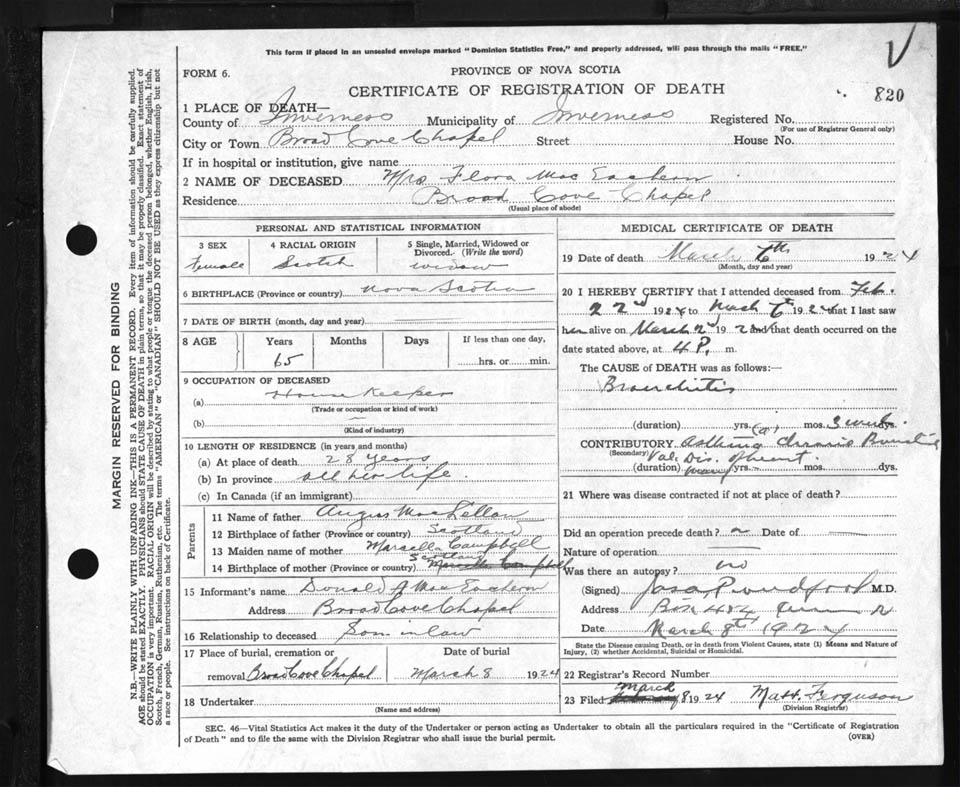 This form if placed in an unsealed envelope marked "Dominion Statistics Free," and properly addressed, will pass through the mails "FREE."
V
FORM 6.
PROVINCE OF NOVA SCOTIA
CERTIFICATE OF REGISTRATION OF DEATH
820
1 PLACE OF DEATH—
County of Inverness Municipality of Inverness Registered No.
(For use of Registrar General only)
City or Town Broad Cove Chapel Street House No.
If in hospital or institution, give name
2 NAME OF DECEASED Mrs Flora Mac Eachern
Residence Broad Cove Chapel
(Usual place of abode)
PERSONAL AND STATISTICAL INFORMATION
3 SEX 4 RACIAL ORIGIN 5 Single, Married, Widowed or Divorced. (Write the word)
Female Scotch widow
6 BIRTHPLACE (Province or country) Nova Scotia
7 DATE OF BIRTH (month, day and year)
8 AGE Years Months Days If less than one day,
65 hrs. or min.
9 OCCUPATION OF DECEASED
(a) House Keeper
(Trade or occupation or kind of work)
(b)
(Kind of industry)
10 LENGTH OF RESIDENCE (in years and months)
(a) At place of death 28 years
(b) In province all her life
(c) In Canada (if an immigrant)
Parents
11 Name of father Angus MacLellan
12 Birthplace of father (Province or country) Scotland
13 Maiden name of mother Marsella Campbell
14 Birthplace of mother (Province or country) Scotland Marsella Campbell
15 Informant's name Donald J Mac Eachern
Address Broad Cove Chapel
16 Relationship to deceased Son in law
17 Place of burial, cremation or removal Broad Cove Chapel Date of burial March 8 1924
18 Undertaker
(Name and address)
MEDICAL CERTIFICATE OF DEATH
19 Date of death March 6th 1924
(Month, day and year)
20 I HEREBY CERTIFY that I attended deceased from Feb.
22nd 1924 to March 6 1924 that I last saw
her alive on March 2nd 192 and that death occurred on
date stated above, at 4 P. m.
The CAUSE of DEATH was as follows:—
Bronchitis
(duration) yrs. mos. 3 weeks dys.
CONTRIBUTORY Asthma Chronic Bronchitis
(Secondary) Val. Dis. of heart
(duration) many yrs. mos. dys.
21 Where was disease contracted if not at place of death?
Did an operation precede death? Date of
Nature of operation
Was there an autopsy? no
(Signed) M.D.
Address Box 484
Date March 8th 1924
State the Disease causing Death, or in death from Violent Causes, state (1) Means and Nature of Injury, (2) whether Accidental, Suicidal or Homicidal.
22 Registrar's Record Number
23 Filed March 8 1924 Matt. Ferguson
(Division Registrar)
SEC. 46—Vital Statistics Act makes it the duty of the Undertaker or person acting as Undertaker to obtain all the particulars required in the "Certificate of Registration
of Death" and to file the same with the Division Registrar who shall issue the burial permit. (OVER)
MARGIN RESERVED FOR BINDING
N.B.—WRITE PLAINLY WITH UNFADING INK—THIS IS A PERMANENT RECORD. Every item of information should be carefully supplied.
AGE should be stated EXACTLY. PHYSICIANS should STATE CAUSE OF DEATH in plain terms, so that it may be properly classified. Exact statement of
OCCUPATION is very important. RACIAL ORIGIN will be described by stating to what people or tongue the deceased person belonged, whether English, Irish,
Scotch, French, German, Russian, Ruthenian, etc. The terms "AMERICAN" or "CANADIAN" SHOULD NOT BE USED as they express citizenship but not
a race or people. See instructions on back of Certificate.